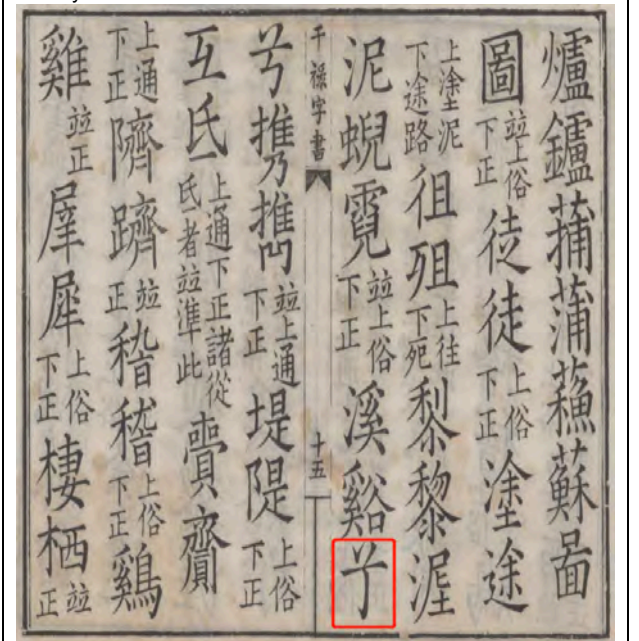 爐鑪蒱蒲蘓蘇啚
圖並上俗下正徒徒上俗下正塗途
上塗泥下途路徂殂上往下死𥟖黎埿
泥蜺霓並上俗下正溪谿
干祿字書 十五
兮携㩦並上通下正堤隄上俗下正
互氐上通下正諸從氐者並準此賷齎
上通下正隮躋並正稽稽上俗下正鷄
雞並正犀犀上俗下正棲栖並正